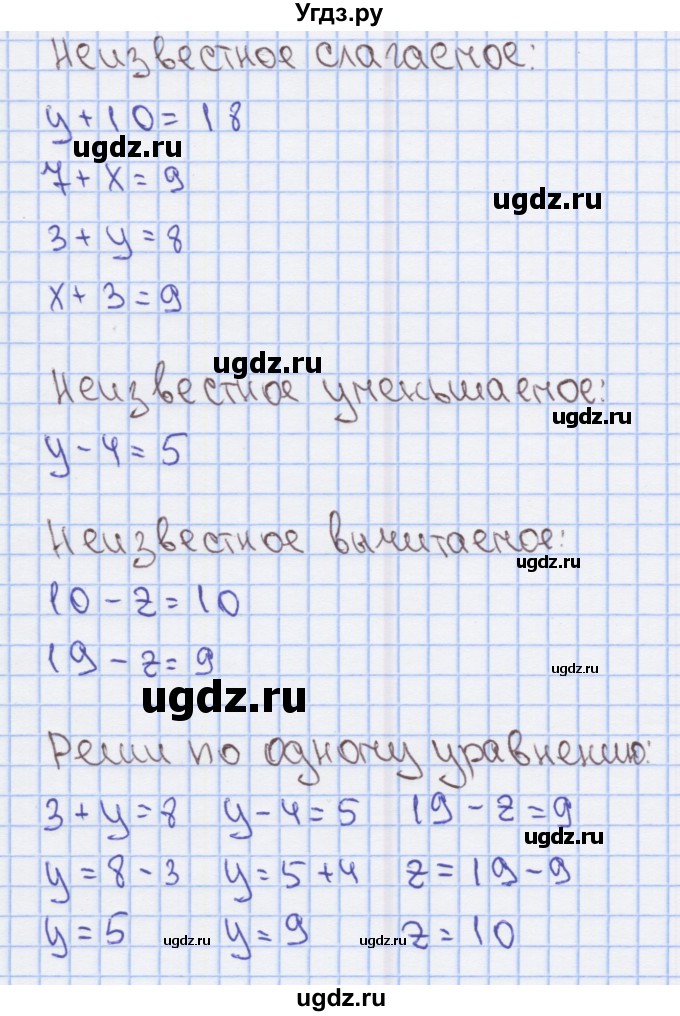 Угдз.ру
Неизвестное слагаемое:
y + 10 = 18
ugdz.ru
7 + x = 9
ugdz.ru
3 + y = 8
x + 3 = 9
ugdz.ru
Неизвестное уменьшаемое:
ugdz.ru
y - 4 = 5
Неизвестное вычитаемое:
ugdz.ru
10 - z = 10
19 - z = 9
ugdz.ru
ugdz.ru
Реши по одному уравнению:
3 + y = 8 y - 4 = 5 19 - z = 9
ugdz.ru
y = 8 - 3 y = 5 + 4 z = 19 - 9
y = 5 ugdz.ru y = 9 ugdz.ru z = 10
ugdz.ru